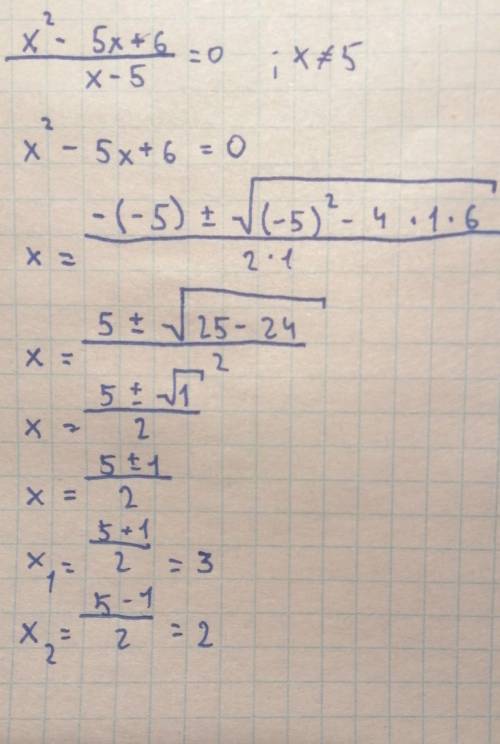 x² - 5x + 6 / x - 5 = 0 ; x ≠ 5
x² - 5x + 6 = 0
x = -(-5) ± √((-5)² - 4 · 1 · 6) / 2 · 1
x = 5 ± √(25 - 24) / 2
x = 5 ± √1 / 2
x = 5 ± 1 / 2
x₁ = 5 + 1 / 2 = 3
x₂ = 5 - 1 / 2 = 2